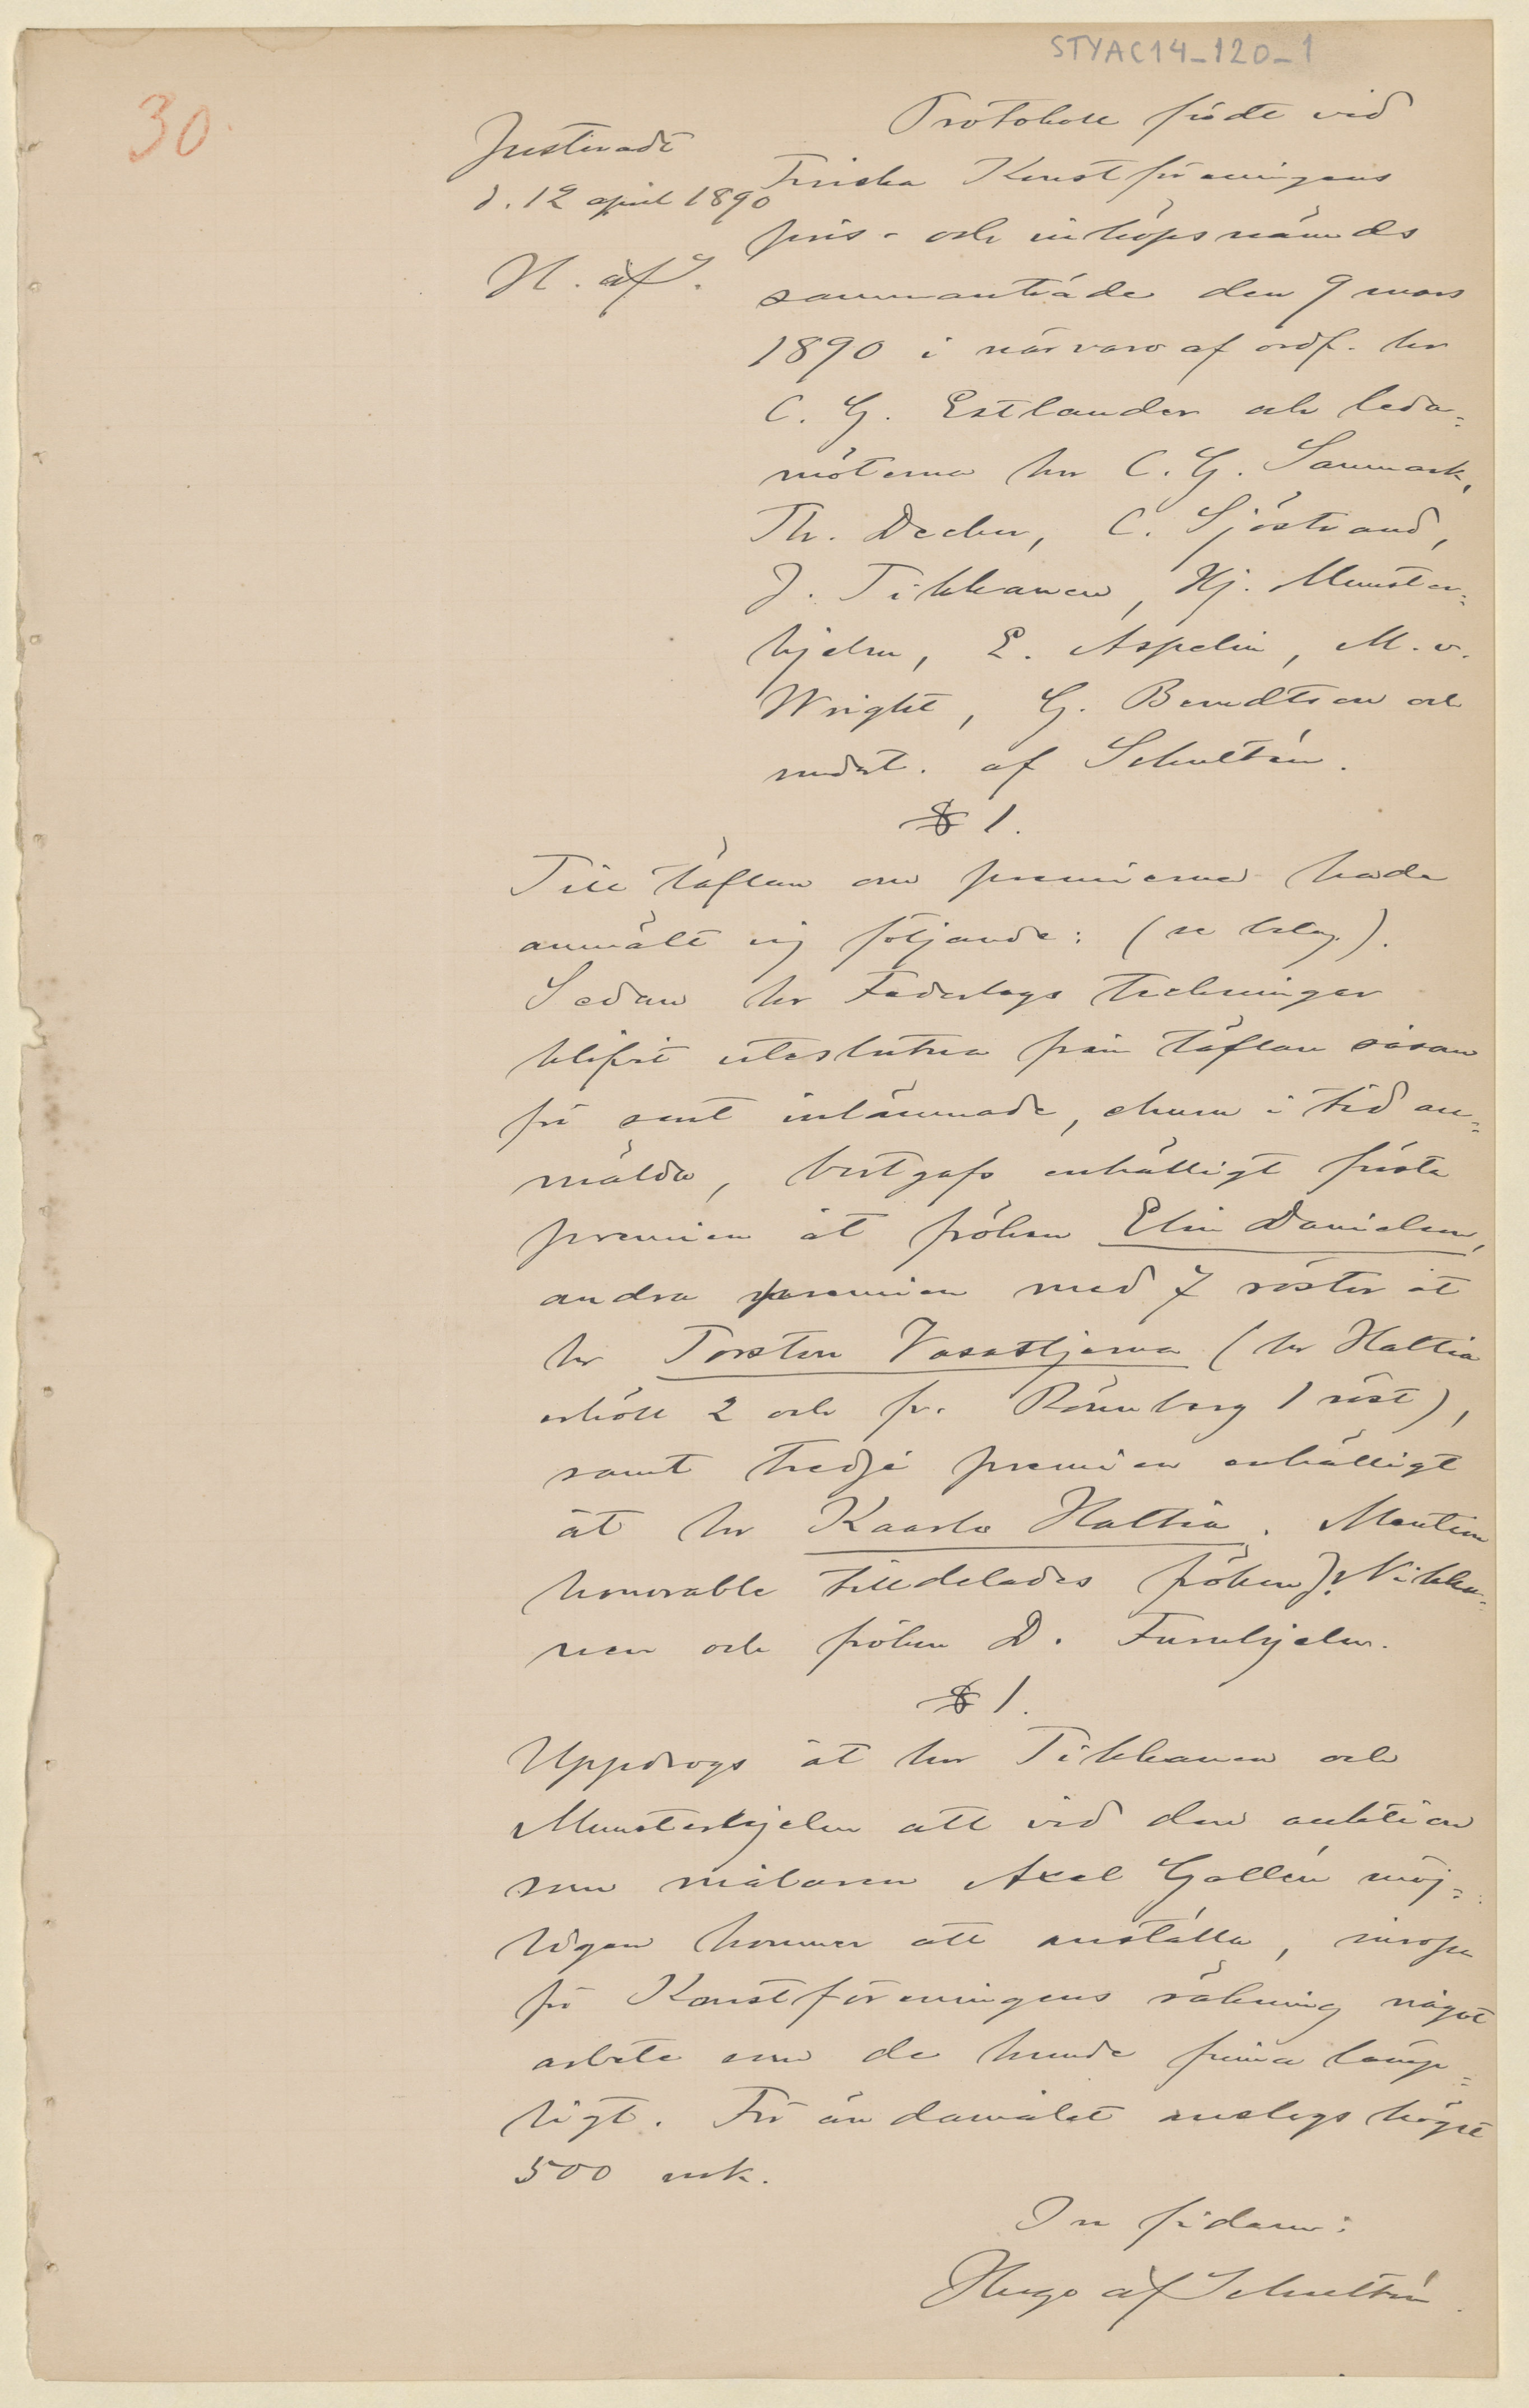 STYAC14_120_1
30.
Justerade
d. 12 april 1890
H. af S.
Protokoll fördt vid
Finska Konstföreningens
pris- och inköpsnämnds
sammanträde den 9 mars
1890 i närvaro af ordf. hr
C. G. Estlander och leda=
möterna hrr C. G. Sanmark,
Th. Decker, C. Sjöstrand,
J. Tikkanen, Hj. Munster=
hjelm, E. Aspelin, M. v.
Wright, G. Berndtson och
undert. af Schultén.
§ 1.
Till täflan om premierna hade
anmält sig följande: (se bilag.).
Sedan hr Federleys teckningar
blifvit uteslutna från täflan såsom
för sent inlämnade, ehuru i tid an=
mälda, bortgafs enhälligt första
premien åt fröken Elin Danielson,
andra premien med 7 röster åt
hr Torsten Vasastjerna (hr Haltia
erhöll 2 och fr. Rönnberg 1 röst),
samt tredje premien enhälligt
åt hr Kaarlo Haltia. Mention
honorable tilldelades fröken Nikka=
nen och fröken D. Furuhjelm.
§ 1.
Uppdrogs åt hrr Tikkanen och
Munsterhjelm att vid den auktion
som målaren Axel Gallén möj=
ligen kommer att anställa, inropa
för Konstföreningens räkning något
arbete som de kunde finna lämp=
ligt. För ändamålet anslogs högst
500 mk.
In fidem:
Hugo af Schultén.